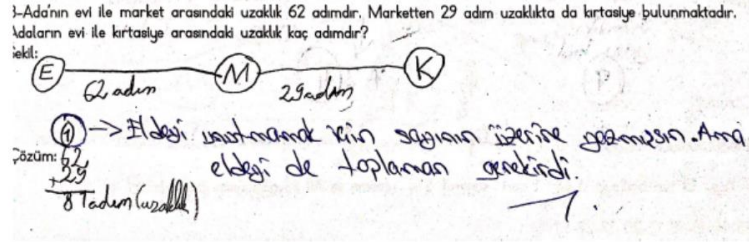 3-Ada'nın evi ile market arasındaki uzaklık 62 adımdır. Marketten 29 adım uzaklıkta da kırtasiye bulunmaktadır.
Adaların evi ile kırtasiye arasındaki uzaklık kaç adımdır?
Şekil:
E M K
62 adım 29 adım
1 → Eldeyi unutmamak için sayının üzerine yazmışsın. Ama
eldeyi de toplaman gerekirdi.
Çözüm: 62
+29
81 adım (uzaklık)